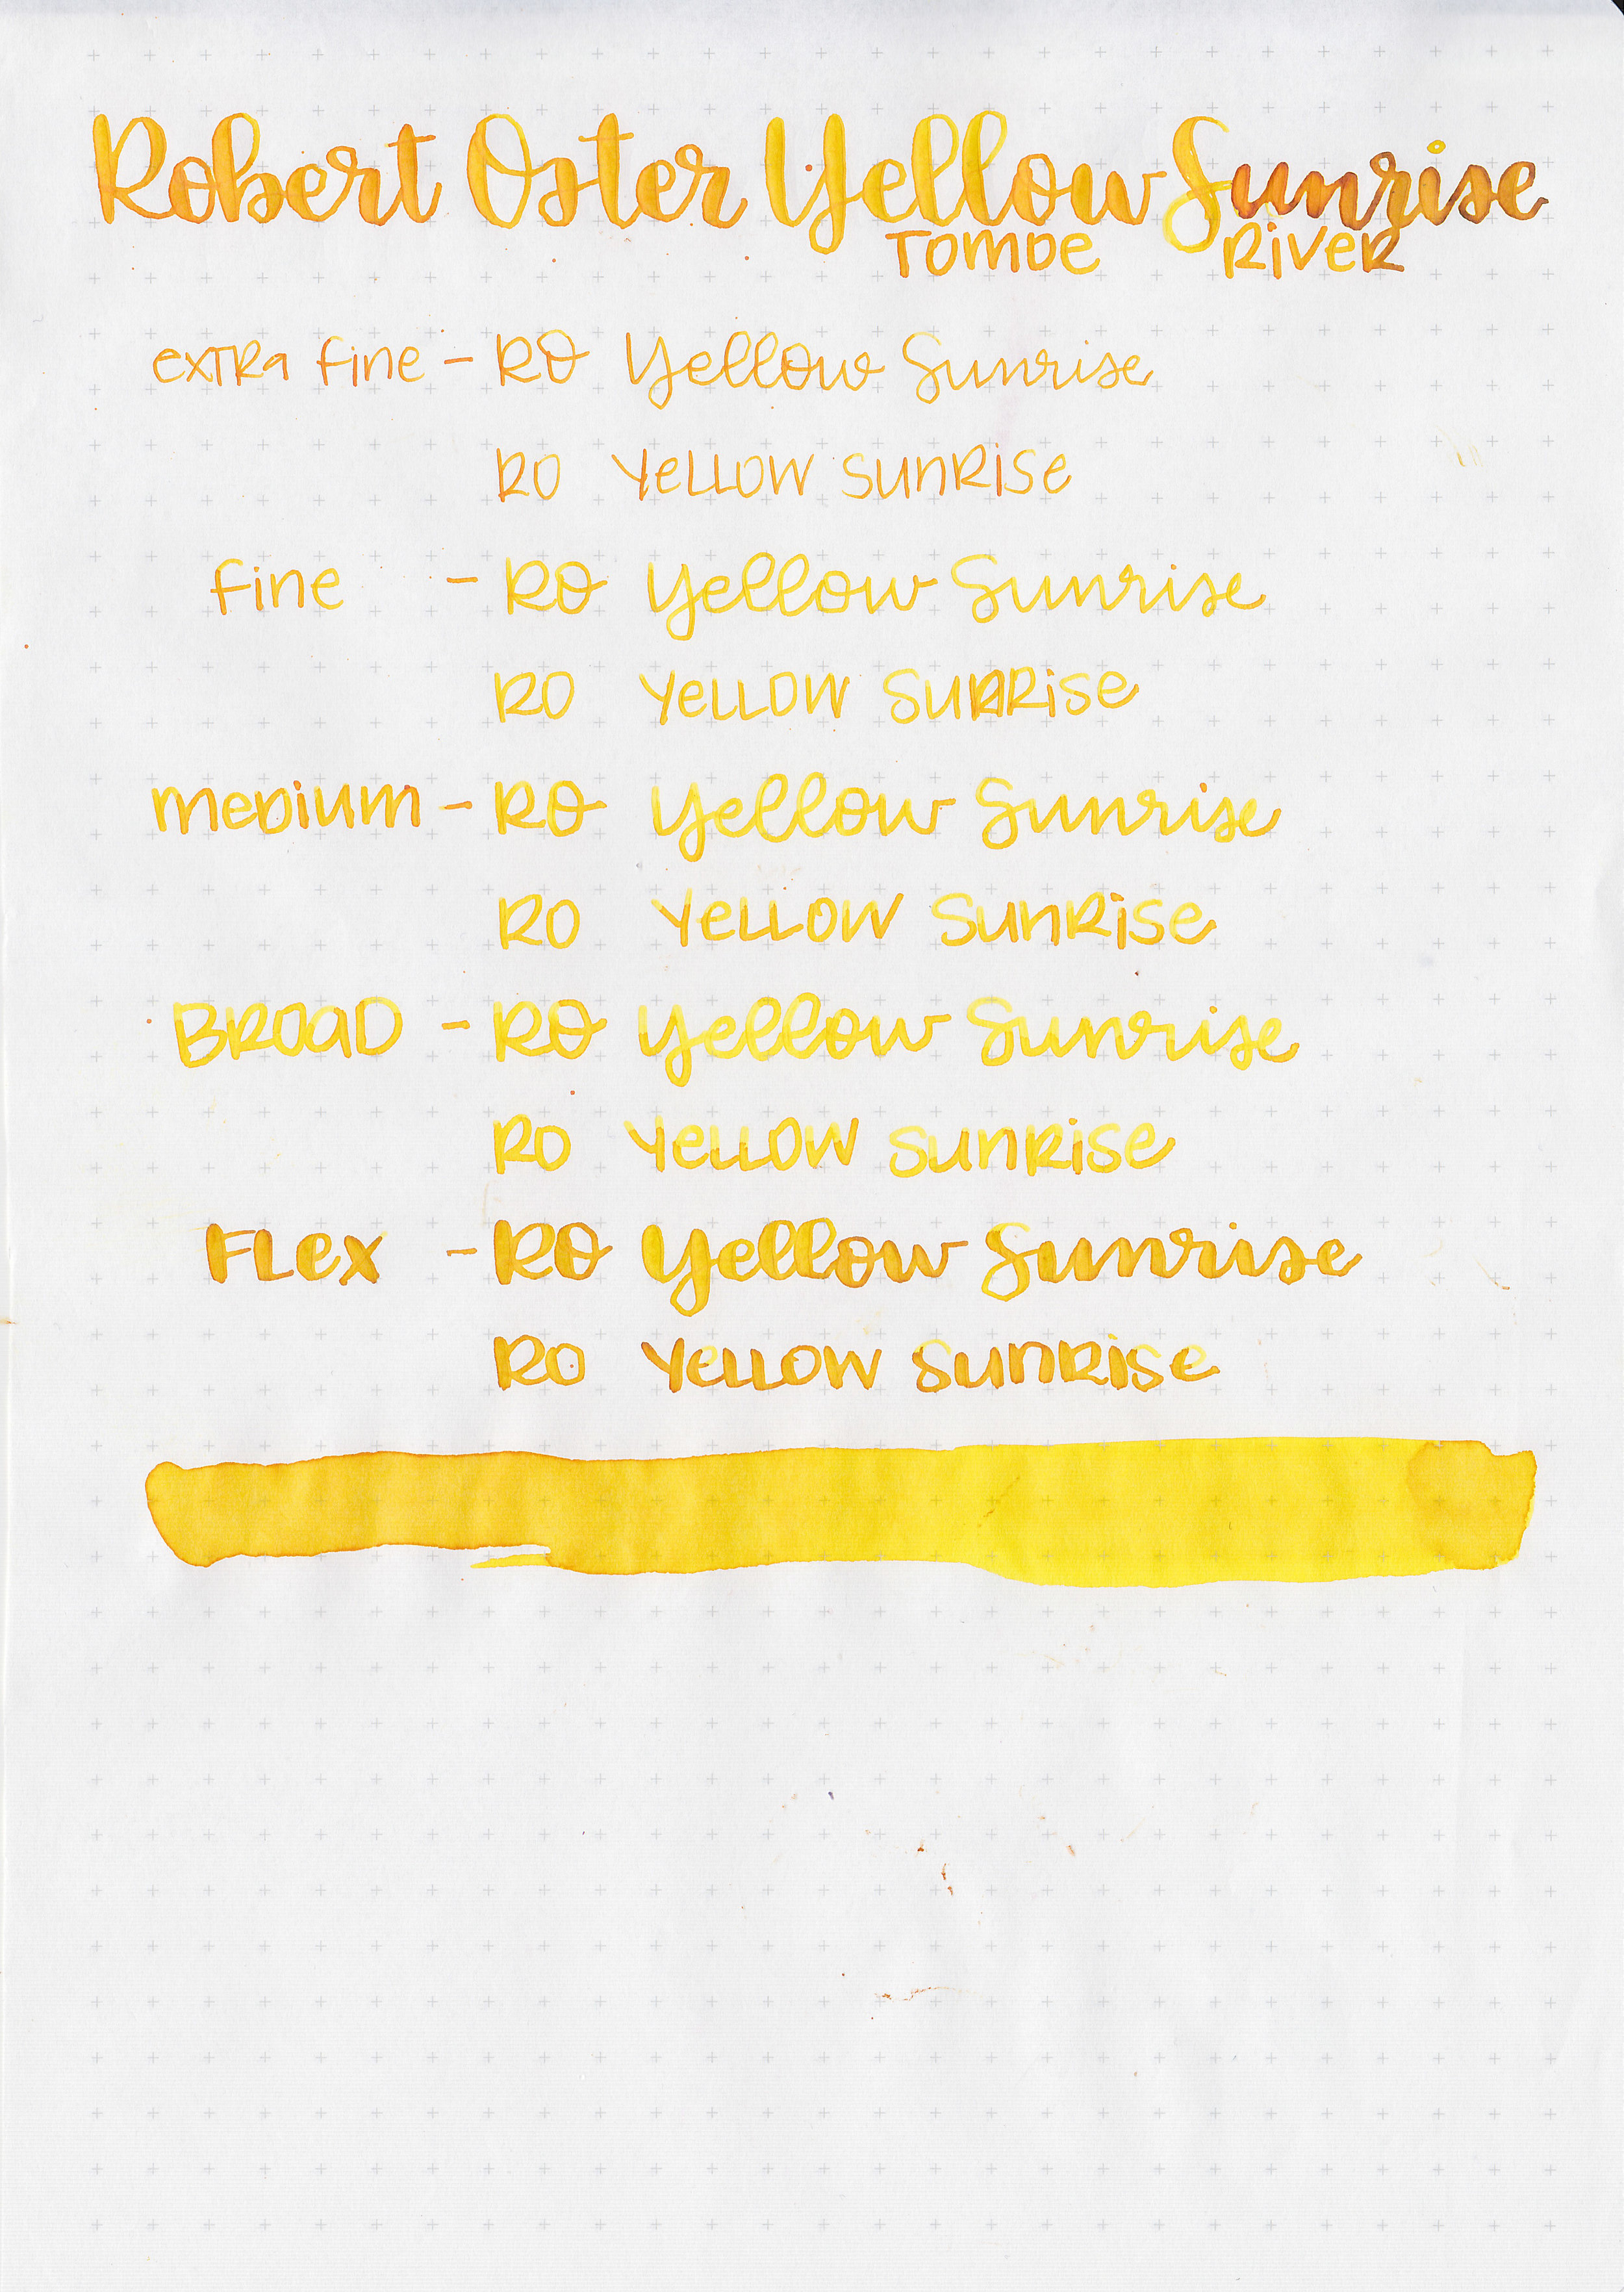 Robert Oster Yellow Sunrise
TOMOE RiVER
exTRa fine - RO Yellow Sunrise
RO YeLLOW SUnRiSe
fine - RO Yellow Sunrise
RO YeLLOW SUnRiSe
meDium - RO Yellow Sunrise
RO YeLLOW SUnRiSe
BROaD - RO Yellow Sunrise
RO YeLLOW SUnRiSe
FLex - RO Yellow Sunrise
RO YeLLOW SUnRiSe